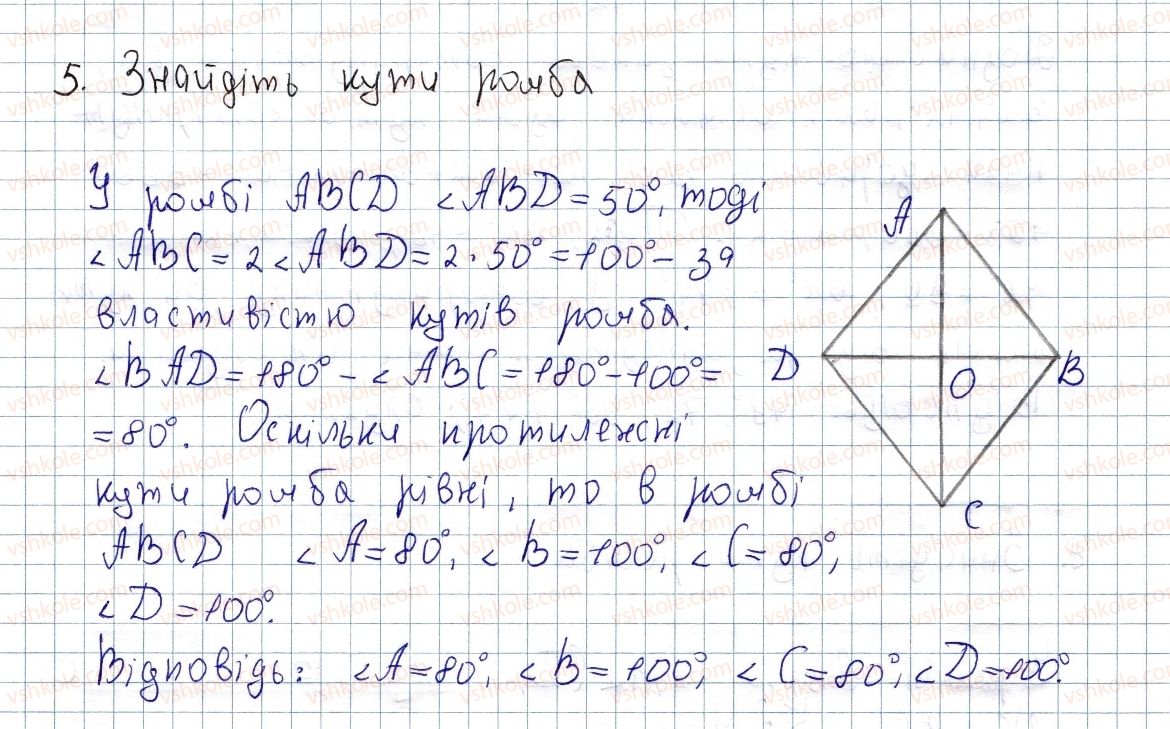 5. Знайдіть кути ромба
У ромбі ABCD ∠ABD = 50°, тоді
∠ABC = 2∠ABD = 2 · 50° = 100° – за
властивістю кутів ромба.
∠BAD = 180° – ∠ABC = 180° – 100° =
= 80°. Оскільки протилежні
кути ромба рівні, то в ромбі
ABCD ∠A = 80°, ∠B = 100°, ∠C = 80°,
∠D = 100°.
Відповідь: ∠A = 80°, ∠B = 100°, ∠C = 80°, ∠D = 100°.
A
D
O
B
C
vshkole.com